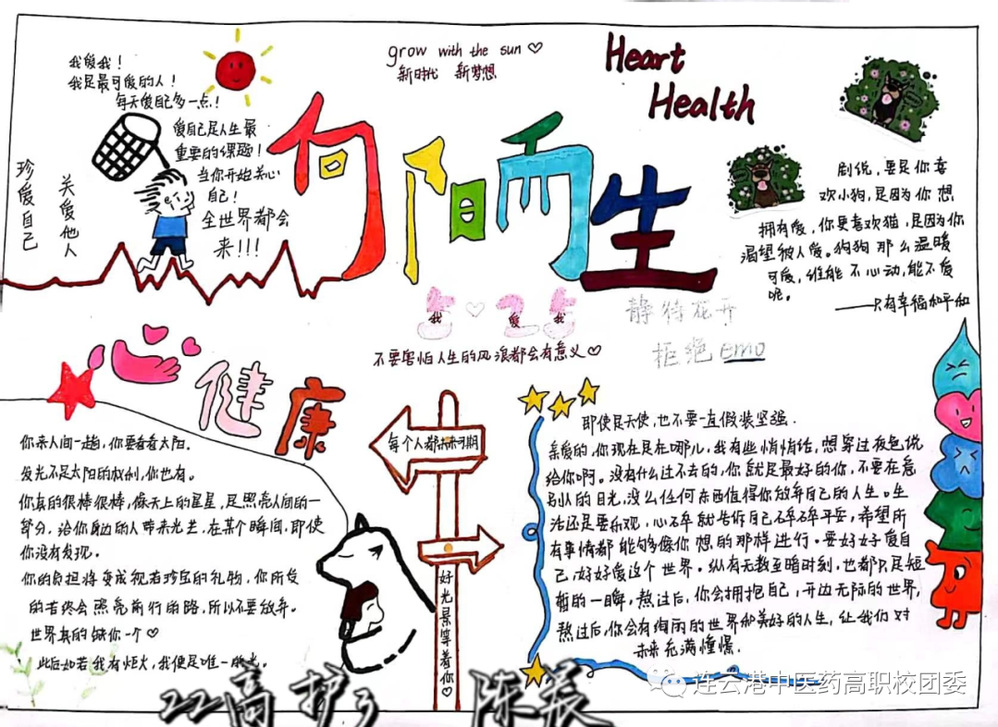 我爱我！
我是最可爱的人！
每天爱自己多一点！
爱自己是人生最
重要的课题！
当你开始关心
自己！
全世界都会
来！！！
珍爱自己
关爱他人
grow with the sun
新时代 新梦想
Heart
Health
向阳而生
剧说，要是你喜
欢小狗，是因为你想
拥有爱，你更喜欢猫，是因为你
渴望被人爱。狗狗那么温暖
可爱，谁能不心动，能不爱
呢。
——只有幸福和平和
我爱我
静待花开
拒绝emo
不要害怕人生的风浪都会有意义
心健康
你来人间一趟，你要看看太阳。
发光不是太阳的权利，你也有。
你真的很棒很棒，像天上的星星，是照亮人间的一
部分，给你身边的人带来光芒，在某个瞬间，即使
你没有发现。
你的负担将变成视若珍宝的礼物，你所受
的苦终会照亮前行的路，所以不要放弃。
世界真的缺你一个
此后如若我有炬火，我便是唯一的光。
每个人都未来可期
好光景等着你
即使是天使，也不要一直假装坚强。
亲爱的，你现在是在哪儿，我有些悄悄话，想穿过夜色说
给你啊。没有什么过不去的，你就是最好的你，不要在意
别人的目光，没么任何东西值得你放弃自己的人生。生
活还是要乐观，心碎就告诉自己碎碎平安，希望所
有事情都能够像你想的那样进行。要好好爱自
己，好好爱这个世界。纵有无数至暗时刻，也都只是短
暂的一瞬，熬过后，你会拥抱自己，开边无际的世界，
熬过后，你会有绚丽的世界和美好的人生，让我们对
未来充满憧憬。
22高护3 陈晨
连云港中医药高职校团委